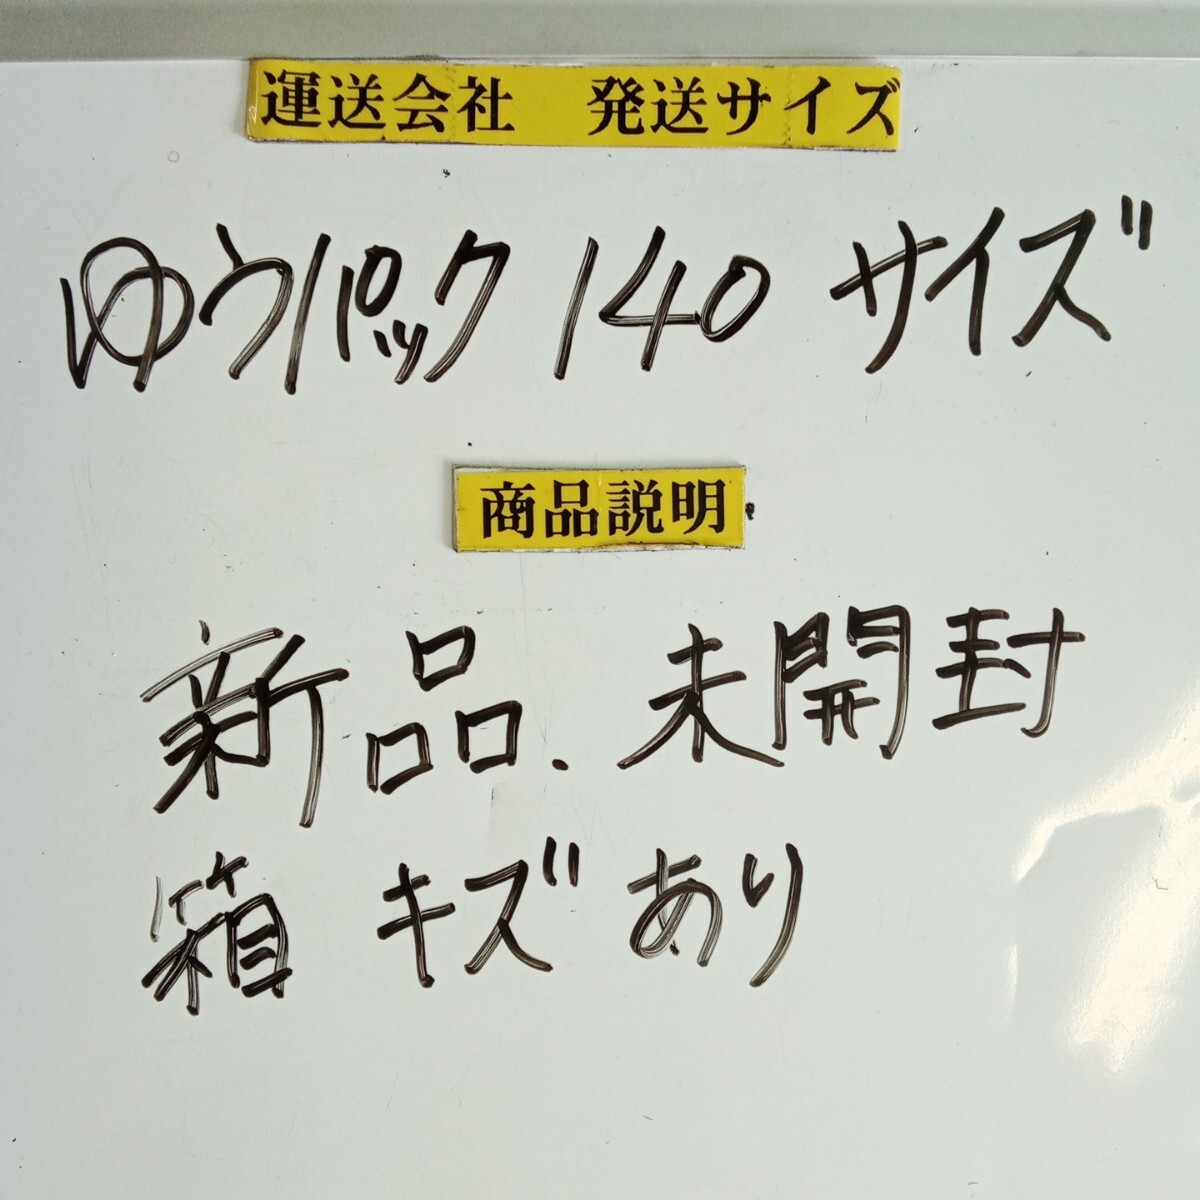 運送会社　発送サイズ
ゆうパック 140 サイズ
商品説明
新品.未開封
箱 キズ あり